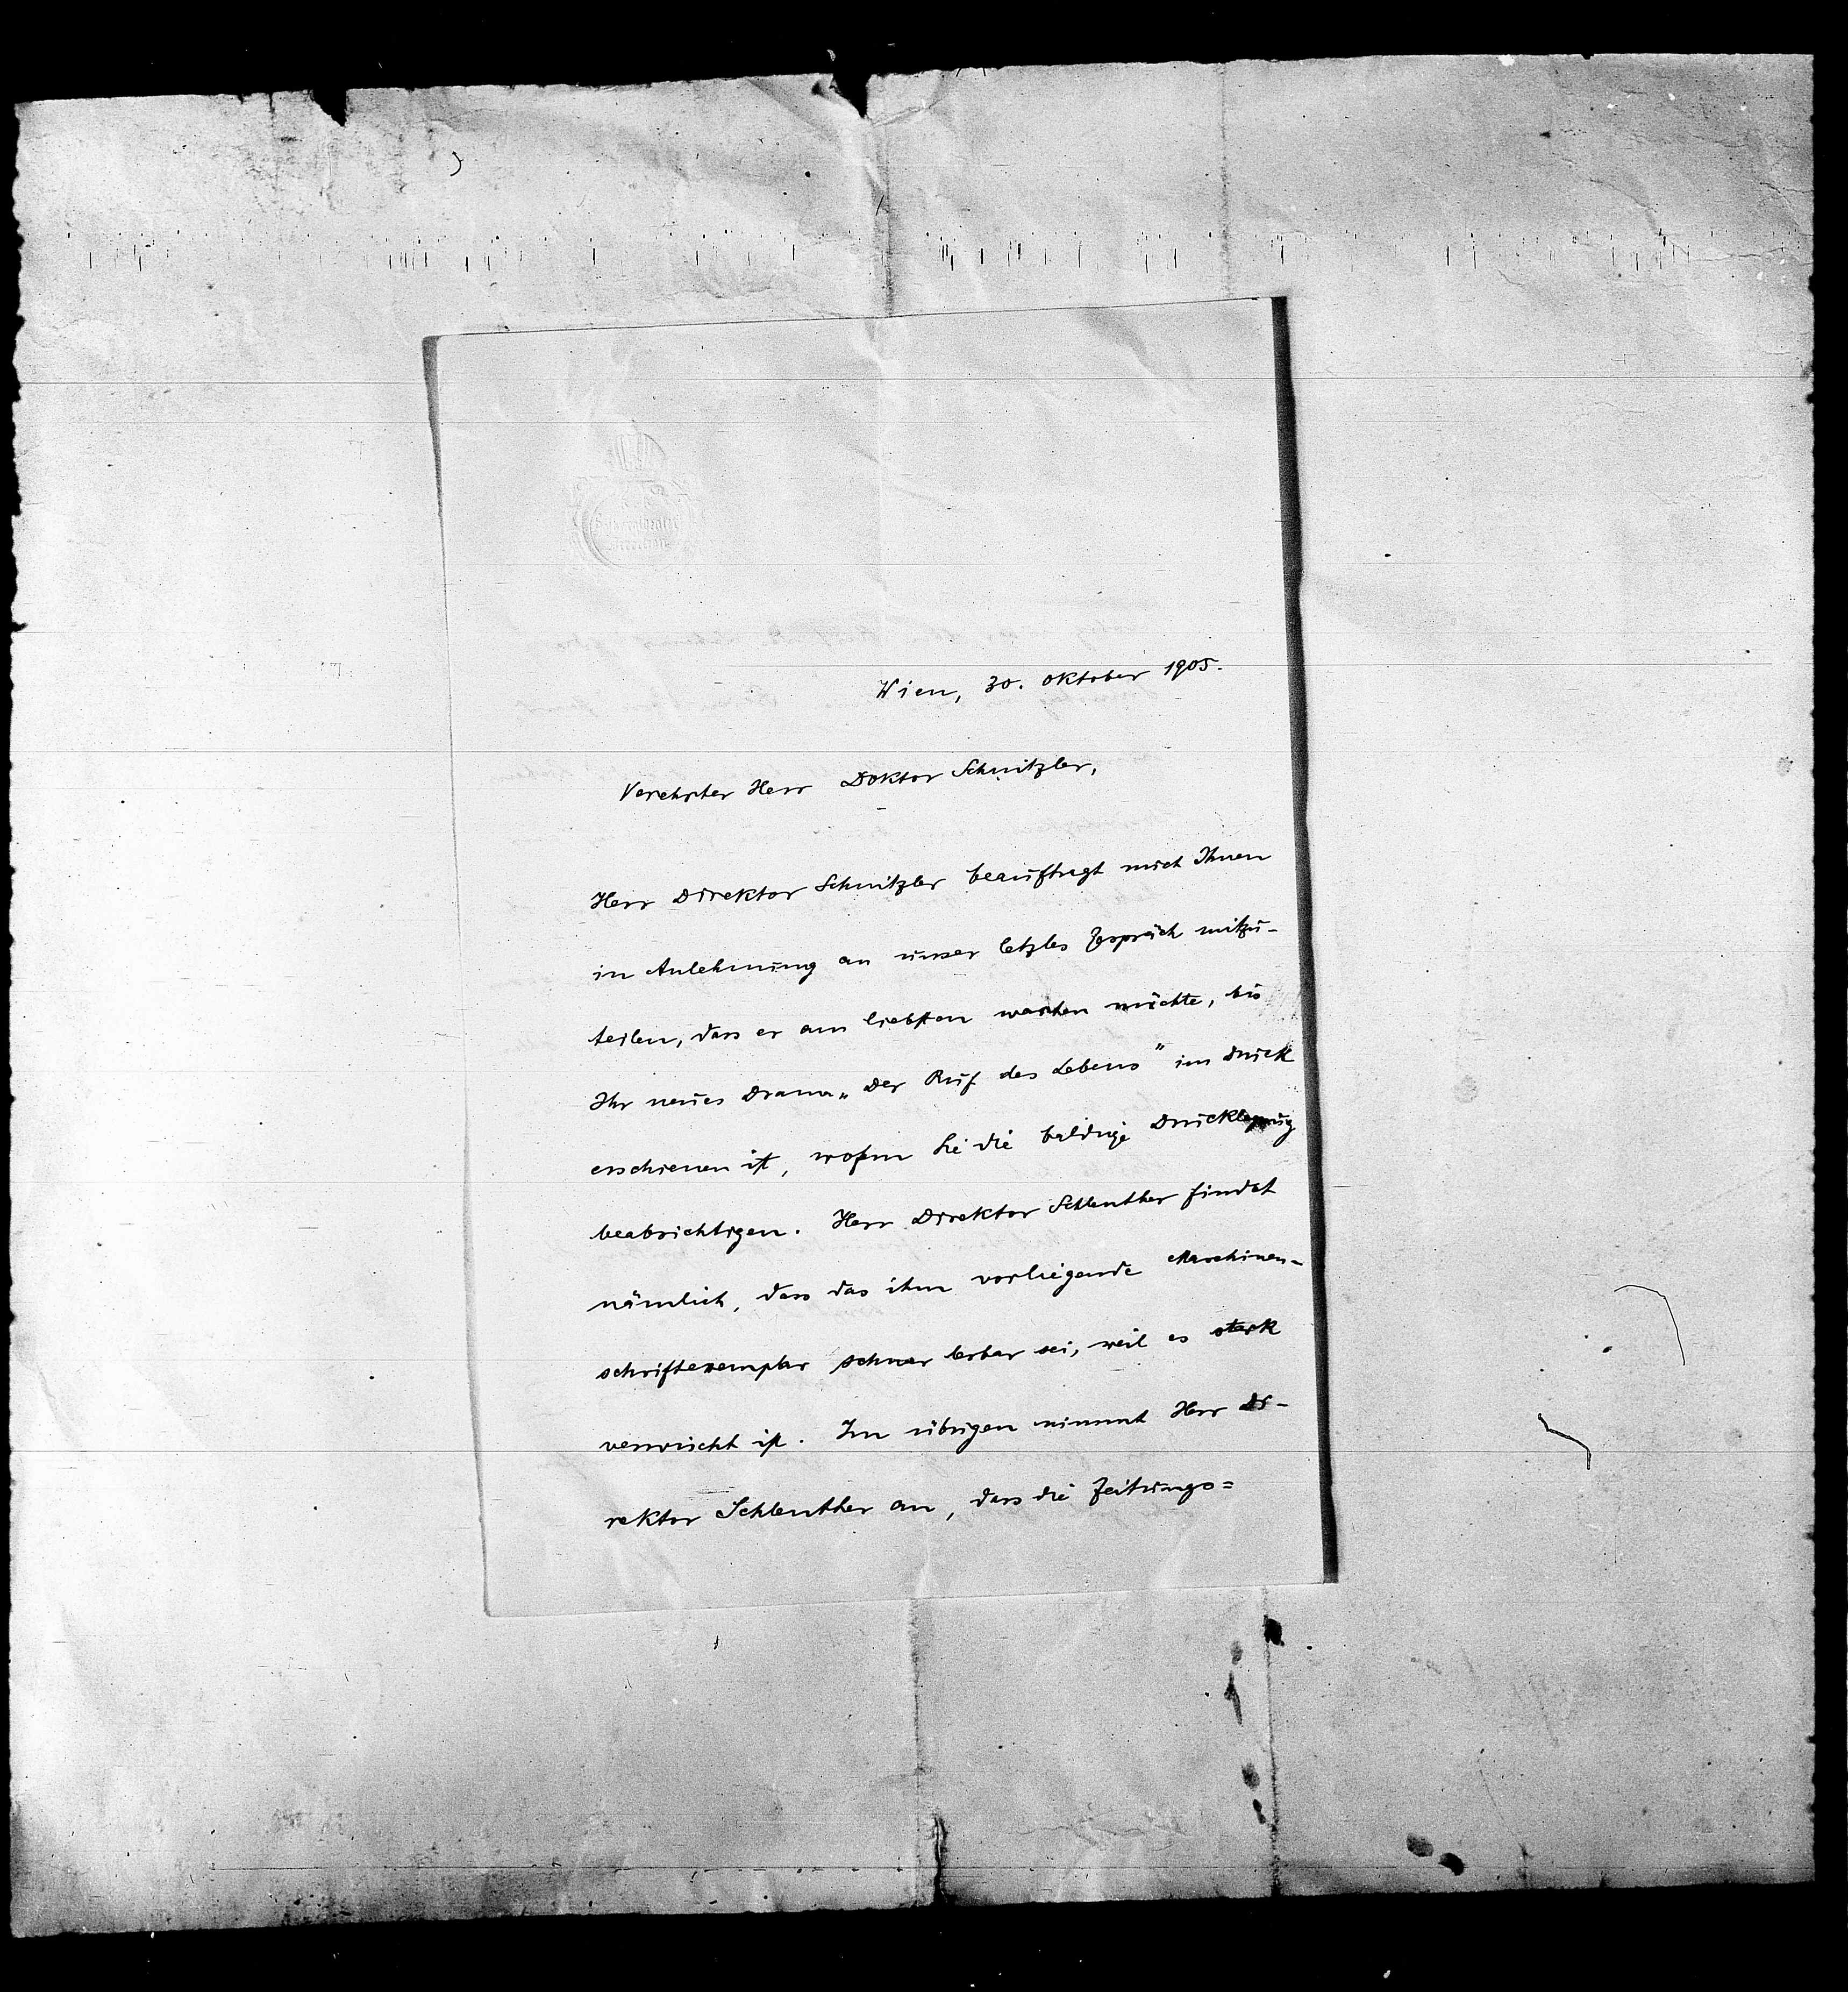 Wien, 30. Oktober 1905.
Verehrter Herr Doktor Schnitzler,
Herr Direktor Schnitzler beauftragt mich Ihnen
in Anlehnung an unser letztes Gespräch mitzu-
teilen, dass er am liebsten warten möchte, bis
Ihr neues Drama „Der Ruf des Lebens" im Druck
erschienen ist, wofern Sie die baldige Drucklegung
beabsichtigen. Herr Direktor Schlenther findet
nämlich, dass das ihm vorliegende Maschinen-
schriftexemplar schwer lesbar sei, weil es stark
verwischt ist. Im übrigen nimmt Herr Di-
rektor Schlenther an, dass die Zeitungs=